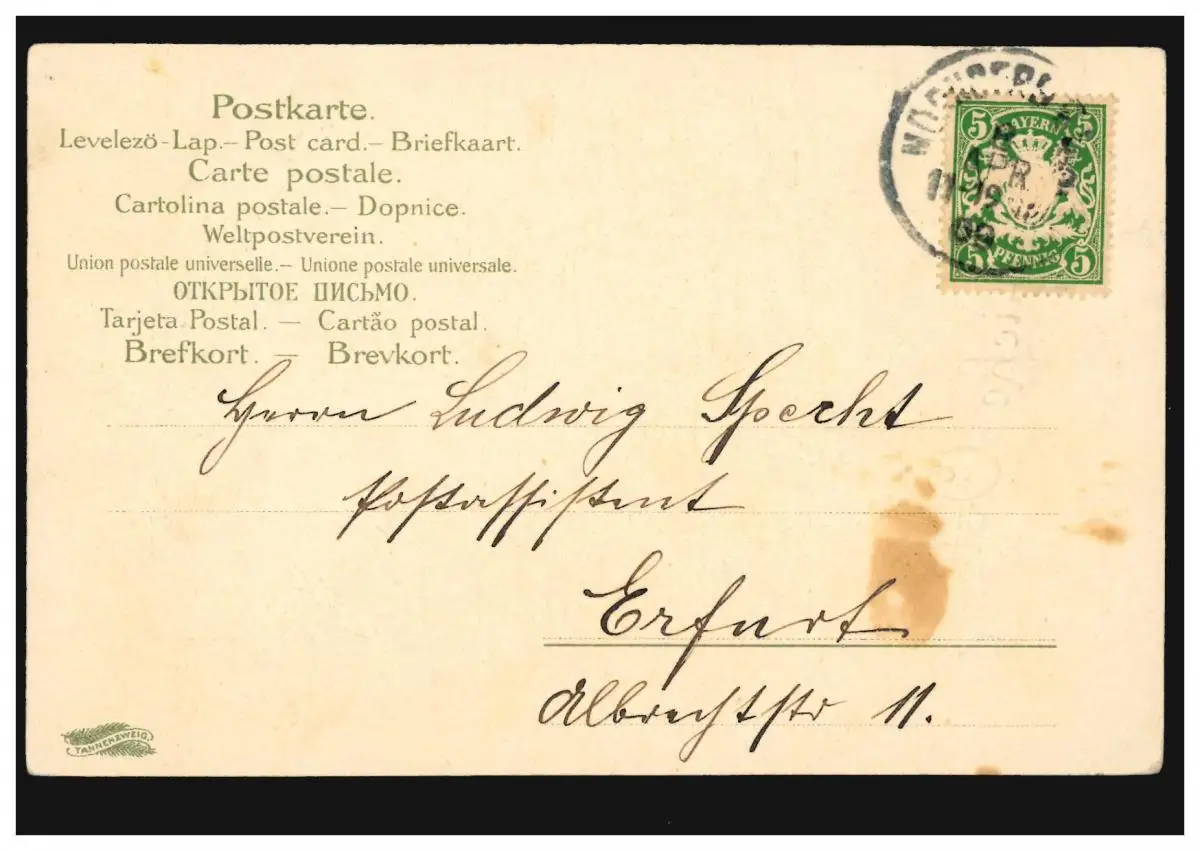 Postkarte.
Levelező-Lap.— Post card.— Briefkaart.
Carte postale.
Cartolina postale.— Dopnice.
Weltpostverein.
Union postale universelle.— Unione postale universale.
ОТКРЫТОЕ ПИСЬМО.
Tarjeta Postal. — Cartão postal.
Brefkort. — Brevkort.
5 BAYERN 5
5 PFENNIG 5
APR
11-12
09
Herrn Ludwig Specht
Postassistent
Erfurt
Albrechtstr 11.
TANNENZWEIG.